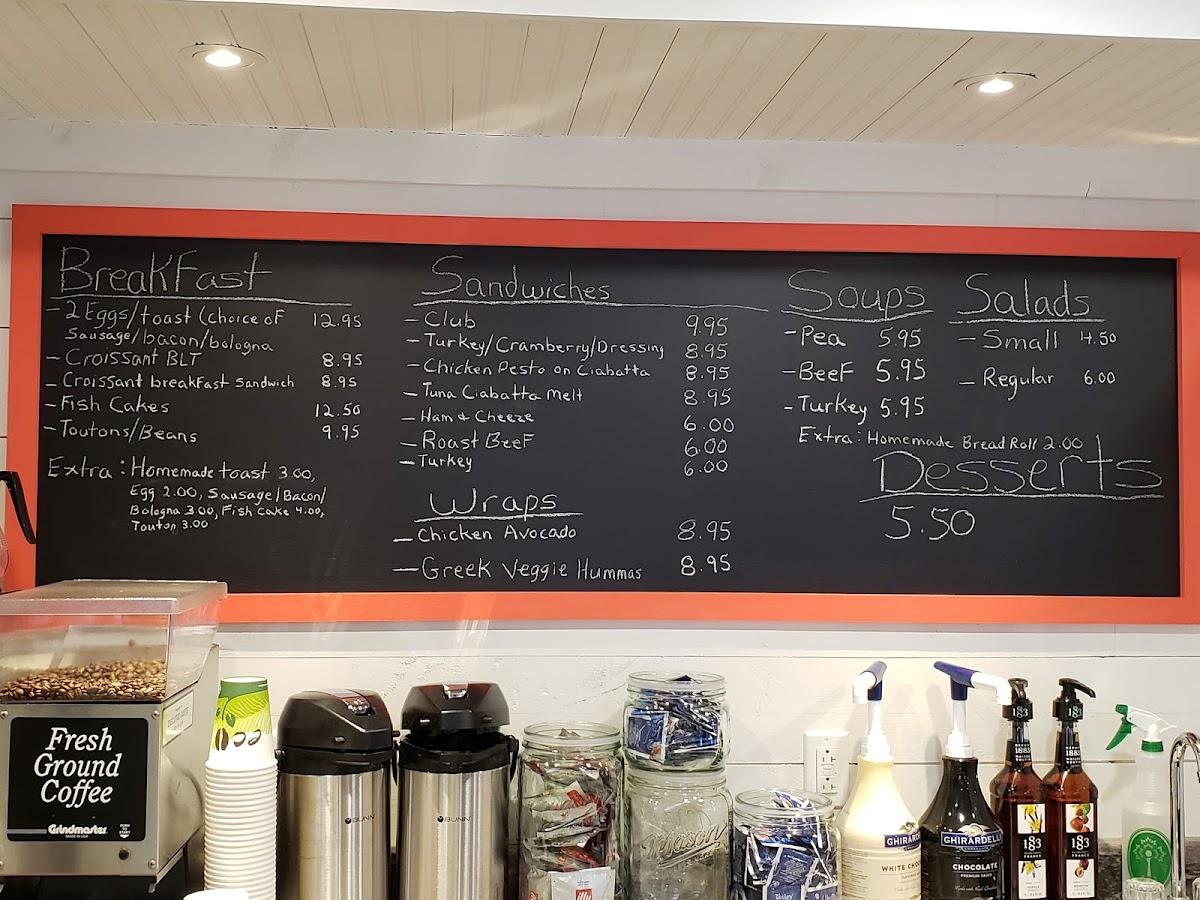 BreakFast
- 2 Eggs/toast (choice oF 12.95
Sausage/bacon/bologna
- Croissant BLT 8.95
- Croissant breakFast Sandwich 8.95
- Fish Cakes 12.50
- Toutons/Beans 9.95
Extra: Homemade toast 3.00,
Egg 2.00, Sausage/Bacon/
Bologna 3.00, Fish cake 4.00,
Touton 3.00
Sandwiches
- Club 9.95
- Turkey/Cramberry/Dressing 8.95
- Chicken Pesto on Ciabatta 8.95
- Tuna Ciabatta melt 8.95
- Ham & Cheeze 6.00
- Roast BeeF 6.00
- Turkey 6.00
Wraps
- Chicken Avocado 8.95
- Greek Veggie Hummas 8.95
Soups
- Pea 5.95
- BeeF 5.95
- Turkey 5.95
Extra: Homemade Bread Roll 2.00
Salads
- Small 4.50
- Regular 6.00
Desserts
5.50
Fresh
Ground
Coffee
Grindmaster
BUNN
BUNN
Mason
illy
GHIRARDELLI
WHITE CHOC
GHIRARDELLI
CHOCOLATE
PREMIUM SAUCE
1883
1883
1883
FRANCE
1883
FRANCE